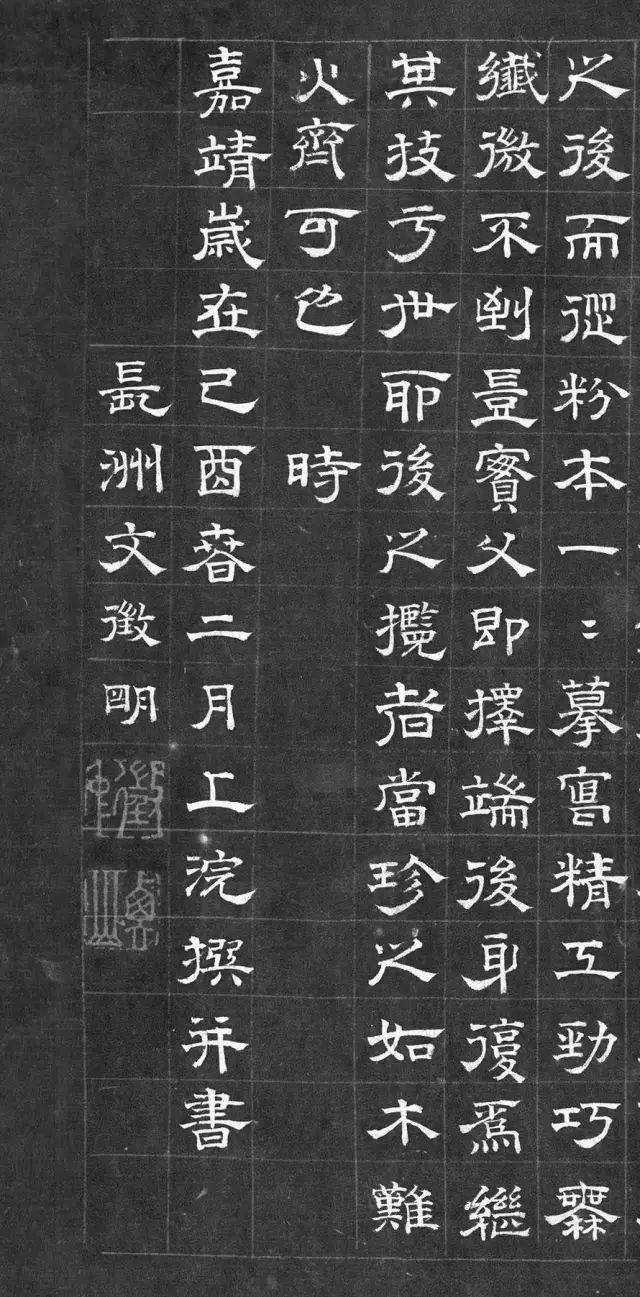 之後而從粉本一〻摹寫精工勁巧無
纖微不到豈實父即擇端後身復爲繼
其技于世耶後之攬者當珍之如木難
火齊可也　時
嘉靖歲在己酉春二月上浣撰并書
長洲文徵明